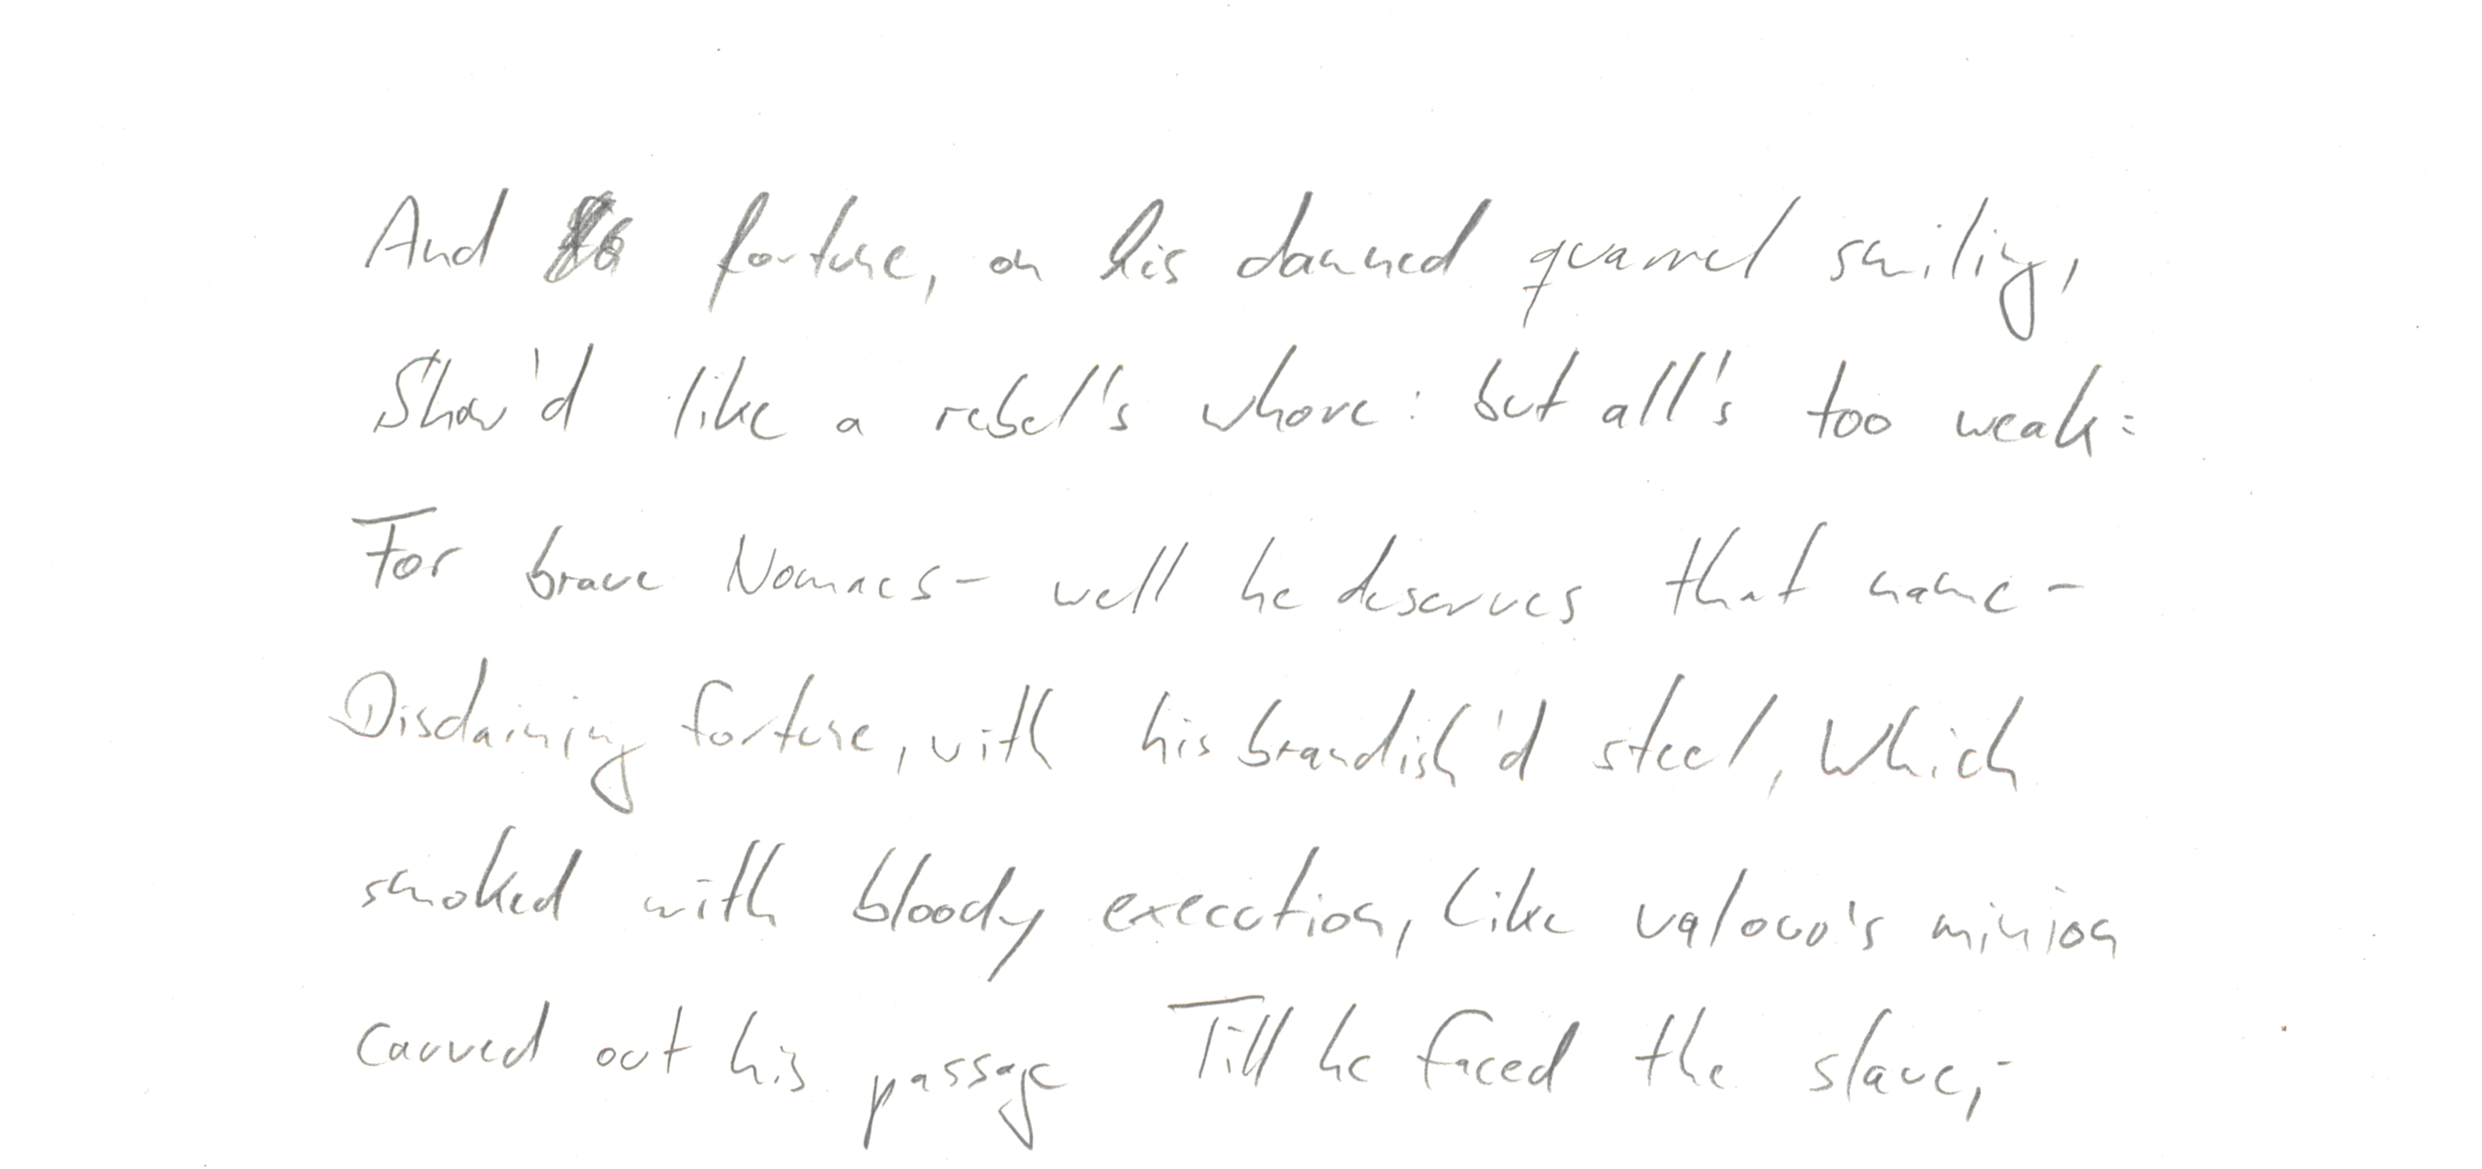 And fortune, on his damned quarrel smiling,
Show'd like a rebel's whore: but all's too weak:
For brave Nomacs- well he deserves that name-
Disdaining fortune, with his brandish'd steel, Which
smoked with bloody execution, Like valour's minion
carved out his passage Till he faced the slave,-